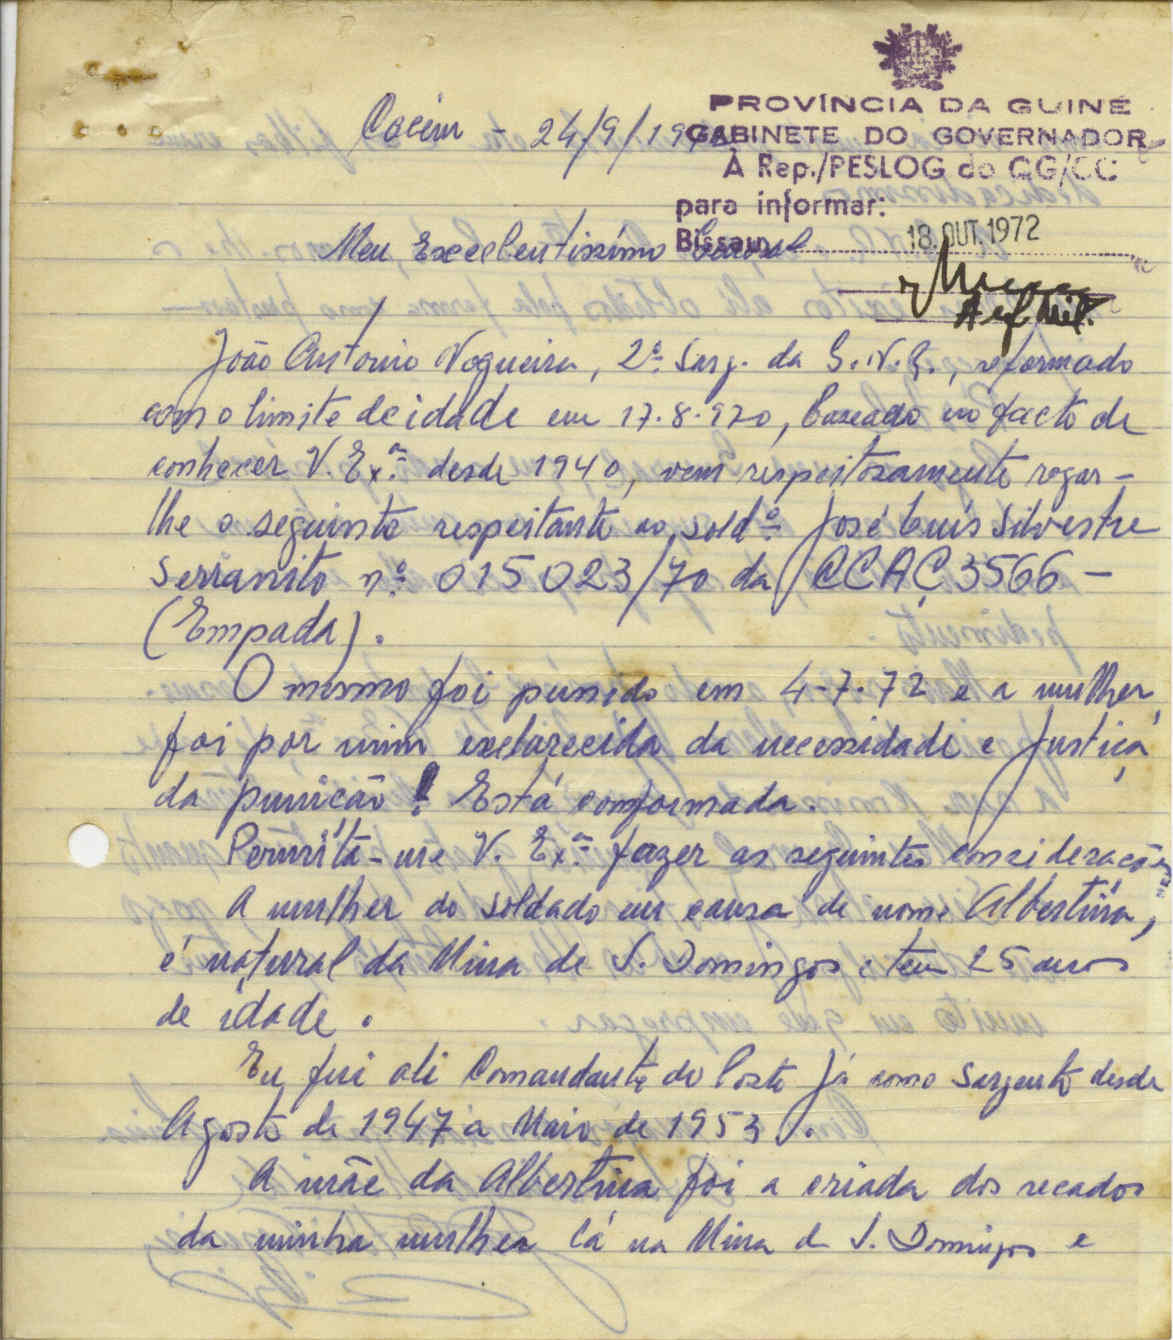 PROVÍNCIA DA GUINÉ
GABINETE DO GOVERNADOR
À Rep./PESLOG do QG/CC
para informar:
Bissau, 18. OUT. 1972
Cacém - 24/9/197
Meu Excelentissimo General
João António Nogueira, 2º Sarg. da G.N.R., reformado
com o limite de idade em 17.8.970, baseado no facto de
conhecer V. Exª. desde 1940, vem respeitosamente rogar-
lhe o seguinte respeitante ao soldº José Luís Silvestre
Serranito nº 015023/70 da CCAÇ 3566 -
(Empada).
O mesmo foi punido em 4-7-72 e a mulher,
foi por mim esclarecida da necessidade e Justiça
da punicão! Está conformada.
Permita-me V. Exª. fazer as seguintes consideração
A mulher do soldado em causa de nome Albertina,
é natural da Mina de S. Domingos e tem 25 anos
de idade.
Eu fui ali Comandante do Posto já como Sargento desde
Agosto de 1947 a Maio de 1953.
A mãe da Albertina foi a criada dos recados
da minha mulher lá na Mina de S. Domingos e